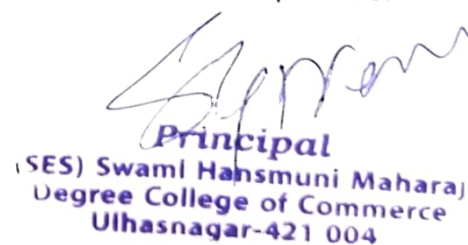 Principal
(SES) Swami Hansmuni Maharaj
Degree College of Commerce
Ulhasnagar-421 004